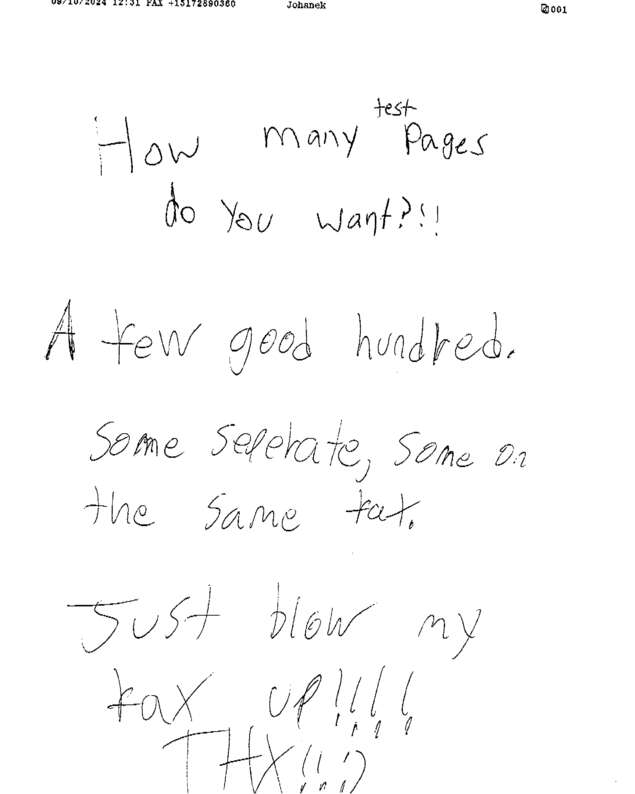 09/10/2024 12:31 FAX +15172890360 Johanek 001
test
How many Pages
do you want?!!
A few good hundred.
Some seperate, some on
the same fax.
Just blow my
fax up!!!!
THX!!:)